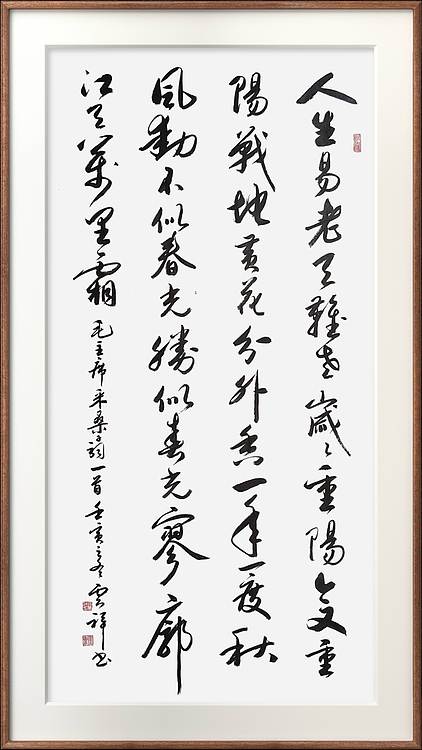 人生易老天難老歲〻重陽今又重
陽戰地黃花分外香一年一度秋
風勁不似春光勝似春光寥廓
江天萬里霜 毛主席采桑子詞一首 壬寅之冬 雲祥書